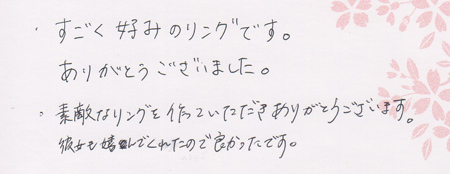 ・すごく好みのリングです。
ありがとうございました。
・素敵なリングを作っていただきありがとうございます。
彼女も喜んでくれたので良かったです。